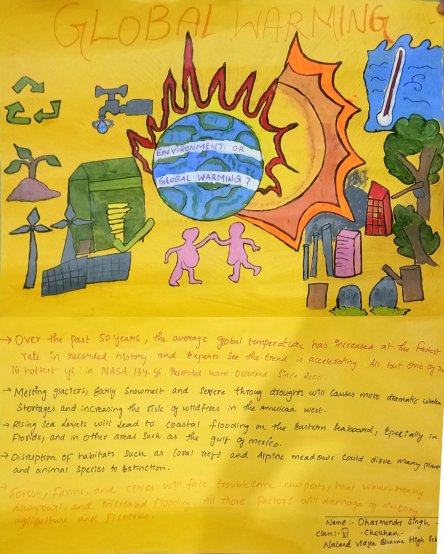 GLOBAL WARMING
ENVIRONMENT OR
GLOBAL WARMING ?
→ Over the past 50 years, the average global temperature has increased at the fastest
rate in recorded history and experts see the trend is accelerating. All but one of the
16 hottest yrs in NASA 134 yr recorded have occurred since 2000.
→ Melting glaciers, Early snowmelt and severe droughts will causes more dramatic water
Shortages and increasing the risk of wildfires in the American west.
→ Rising Sea levels will lead to Coastal flooding on the Eastern Seaboard, Epecially in
Florida, and in other areas such as the gulf of mexico.
→ Disruption of habitats such as Coral reefs and Alpine meadows could drive many plant
and animal species to extinction.
→ Forest, Farms, and cities will face troublesome new pests, heat waves, heavy
downpours, and increased flooding. All those factors will damage
agriculture and Fisheries.
Name:- Dharmender Singh
Class:- VI - Chouhan -
Naland vidya Bhavan High Sch